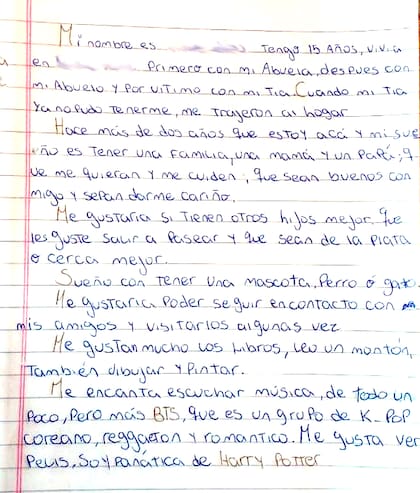 Mi nombre es Tengo 15 Años, vivia
en Primero con mi Abuela, despues con
mi Abuelo y Por ultimo con mi Tia. Cuando mi Tia
Ya no Pudo Tenerme, me Trajeron al hogar
Hace más de dos años que estoy acá y mi sue
ño es Tener una Familia, una mamá y un Papá; q
ue me quieran y me cuiden; que sean buenos con
migo y sepan darme cariño.
Me gustaria si Tienen otros hijos mejor. Que
les guste salir a Pasear y que sean de la Plata
o cerca mejor.
Sueño con Tener una mascota, Perro ó gato.
Me gustaria Poder seguir en contacto con
mis amigos y visitarlos algunas vez
Me gustan mucho los Libros, leo un montón,
También dibujar y Pintar.
Me encanta escuchar música, de todo un
Poco, Pero más BTS, que es un grupo de K-Pop
coreano, reggaeton y romantico. Me gusta ver
Pelis, Soy Fanática de Harry Potter